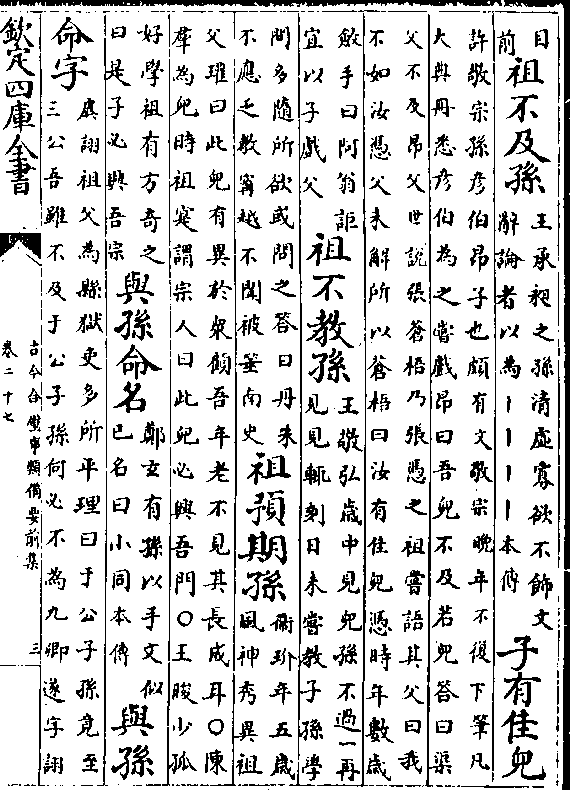 目
前
祖不及孫
王承昶之孫清虛寡欲不飾文
辭論者以為丨丨丨丨本傳
子有佳兒
許敬宗孫彦伯昂子也頗有文敬宗晚年不復下筆凡
大典冊悉彦伯為之嘗戲昂曰吾兒不及若兒答曰渠
父不及昂父世說張蒼梧乃張憑之祖嘗語其父曰我
不如汝憑父未解所以蒼梧曰汝有佳兒憑時年數歲
斂手曰阿翁詎
宜以子戲父
祖不教孫
王敬弘歲中見兒孫不過一再
見見輒剋日未嘗教子孫學
問多隨所欲或問之答曰丹朱
不應乏教甯越不聞被箠南史
祖預期孫
衞玠年五歲
風神秀異祖
父瓘曰此兒有異於衆顧吾年老不見其長成耳○陳
羣為兒時祖寔謂宗人曰此兒必興吾門○王晙少孤
好學祖有方奇之
曰是子必興吾宗
與孫命名
鄭玄有孫以手文似
已名曰小同本傳
與孫
命字
虞詡祖父為縣獄吏多所平理曰于公子孫竟至
三公吾雖不及于公子孫何必不為九卿遂字詡
欽定四庫全書
古今合璧事類備要前集
卷二十七
三